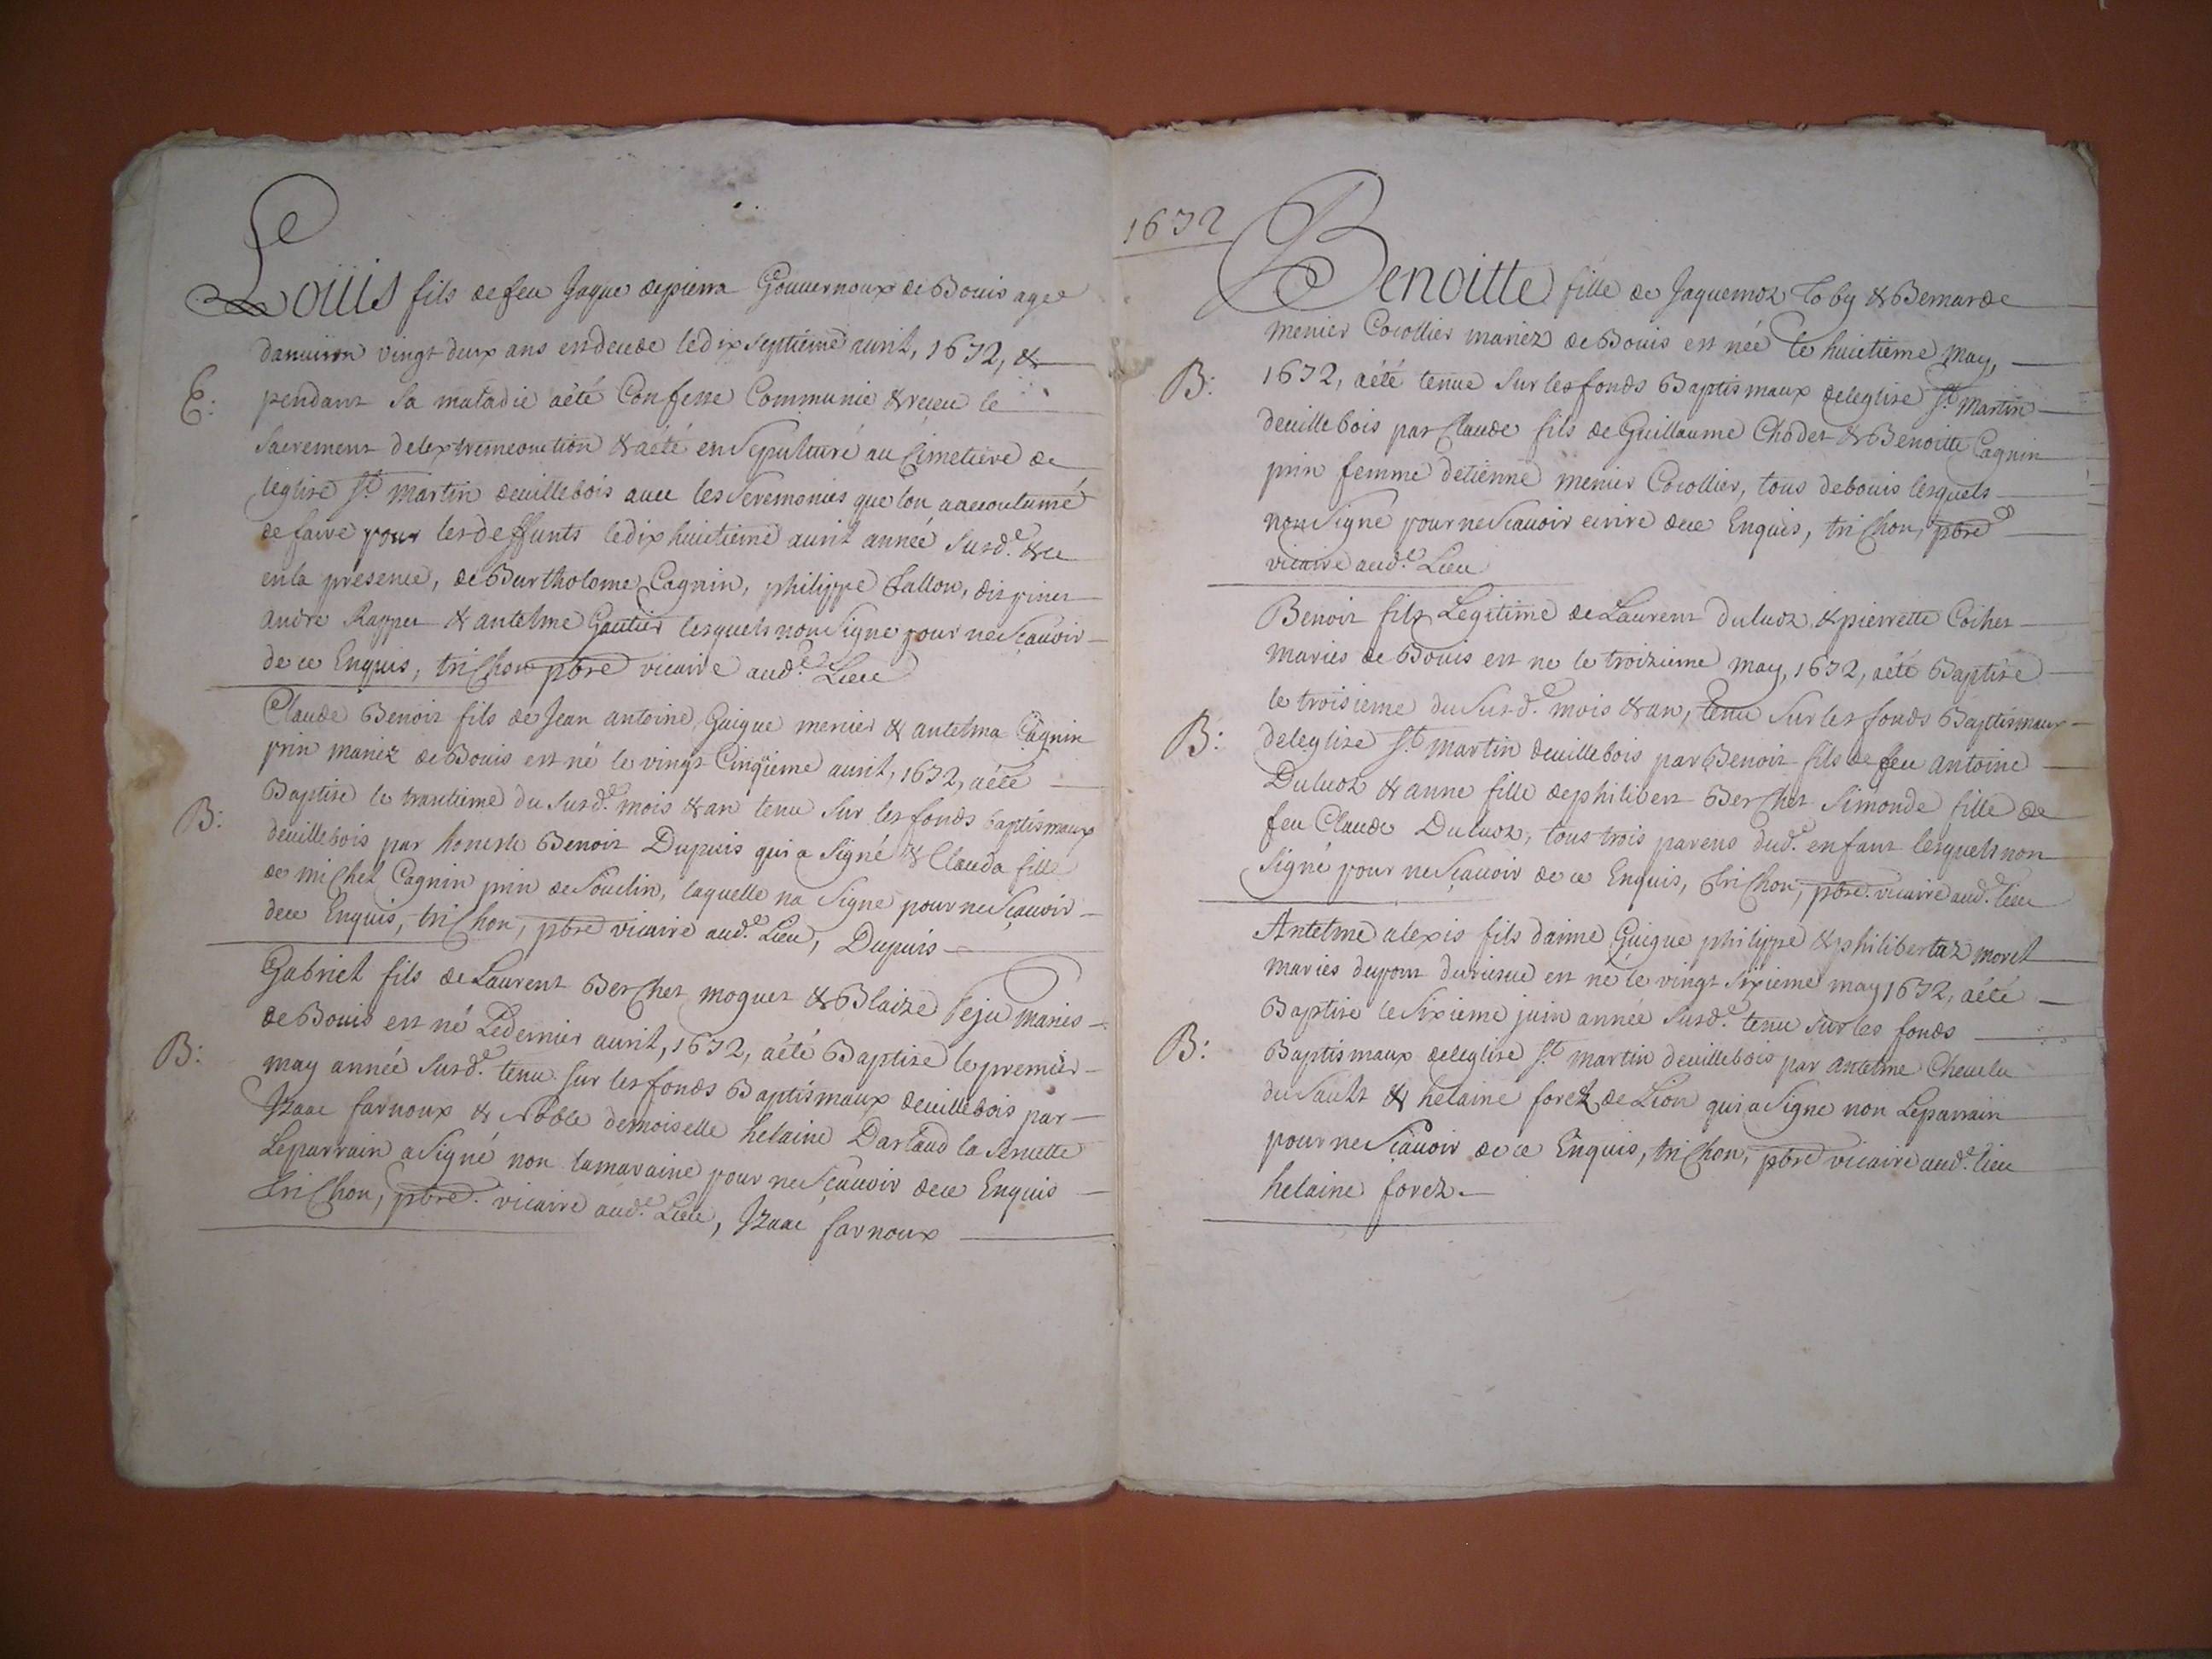 Louis fils de feu Jaque depierra Gouuernoux de Bouis age
danuiron vingt deux ans est decede le dix septieme auril, 1672, &
E: pendant sa maladie aété Confesse Communie & receu le
sacrement delextremeonction & aété ensepulturé au Cimetiere de
leglise St. martin deuillebois auec les Seremonies que lon aaccoutumé
de faire pour les deffunts le dix huictieme auril année susd.e & ce
en la presence, de Bartholome Cagnin, philippe Tallon, dit pinet
andre Rappet & antelme Gautier lesquels nont signe pour ne sçauoir
de ce Enquis, triChon pbre vicaire aud.e Lieu
Claude Benoit fils de Jean antoine Guigue menier & antelma Cagnin
prin mariez de Bouis est né le vingt Cinqieme auril, 1672, aété
B: Baptise le trantieme du susd.e mois & an tenu sur les fonds baptismaux
deuillebois par honeste Benoit Dupuis qui a signé & Clauda fille
de miChel Cagnin prin de Souclin, laquelle na signe pour ne sçauoir
dece Enquis, triChon, pbre vicaire aud.e Lieu, Dupuis
Gabriel fils de Laurent BerChet moguet & Blaize Peju maries
de Bouis est né Le dernier auril, 1672, aété Baptise le premier
B: may année susd.e tenu sur les fonds Baptismaux deuillebois par
Izaac farnoux & Noble demoiselle helaine Dartaud la Seruette
Leparrain a signé non lamaraine pour ne sçauoir dece Enquis
triChon, pbre. vicaire aud.e Lieu, Izaac farnoux
1672
Benoitte fille de Jaquemoz Toby & Bernarde
menier Cocollier mariez de Bouis est née le huictieme may,
B: 1672, aété tenue sur les fonds Baptismaux deleglise St. martin
deuillebois par Claude fils de Guillaume Chodet & Benoitte Cagnin
prin femme detienne menier Cocollier, tous debouis lesquels
nont signé pour ne scauoir ecrire dece Enquis, triChon, pbre
vicaire aud.e Lieu
Benoit fils Legitime de Laurent Duluoz & pierrette Coihet
maries de Bouis est ne le troizieme may, 1672, aété Baptise
le troisieme du susd.e mois & an, tenu sur les fonds Baptismaux
B: deleglise St. martin deuillebois par Benoit fils de feu antoine
Duluoz & anne fille dephilibert BerChet Simonde fille de
feu Claude Duluoz, tous trois parens dud. enfant lesquels non
signé pour ne sçauoir de ce Enquis, triChon, pbre. vicaire aud.e lieu
Antelme alexis fils daime Guigue philippe & philibertaz moret
maries dupont durieux est né le vingt sixieme may 1672, aété
Baptise le sixieme juin année susd.e tenu sur les fonds
B: Baptismaux deleglise St. martin deuillebois par antelme Cheuelu
du Sault & helaine forez de Lion qui a signe non Leparrain
pour ne sçauoir de ce Enquis, triChon, pbre vicaire aud.e lieu
helaine forez.